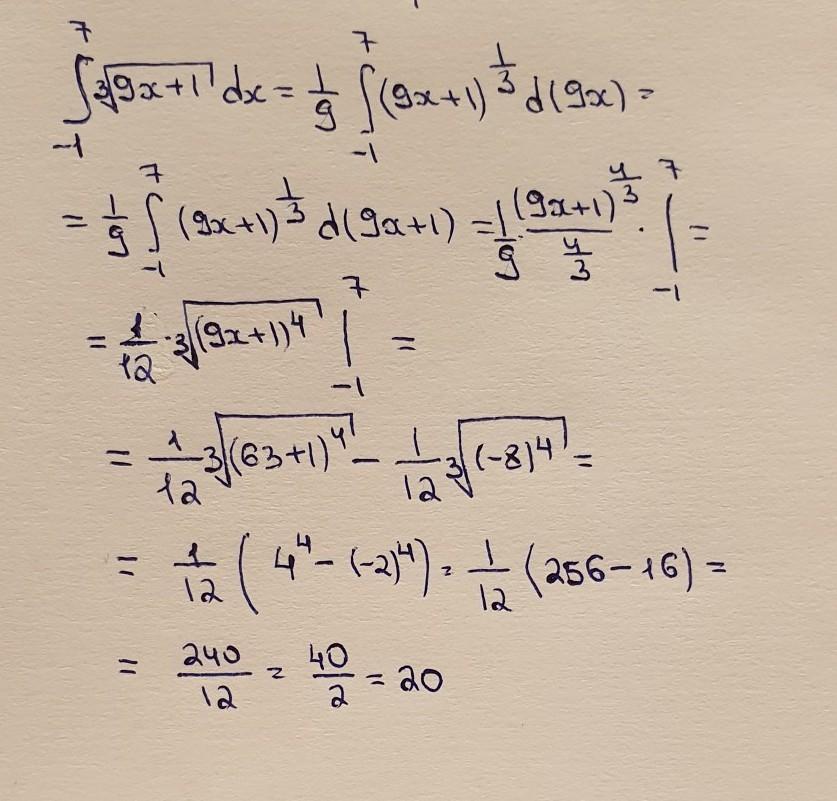 ∫_{-1}^{7} ∛(9x+1) dx = 1/9 ∫_{-1}^{7} (9x+1)^{1/3} d(9x) =
= 1/9 ∫_{-1}^{7} (9x+1)^{1/3} d(9x+1) = 1/9 · (9x+1)^{4/3} / (4/3) · |_{-1}^{7} =
= 1/12 · ∛((9x+1)^4) |_{-1}^{7} =
= 1/12 ∛((63+1)^4) - 1/12 ∛((-8)^4) =
= 1/12 (4^4 - (-2)^4) = 1/12 (256 - 16) =
= 240/12 = 40/2 = 20